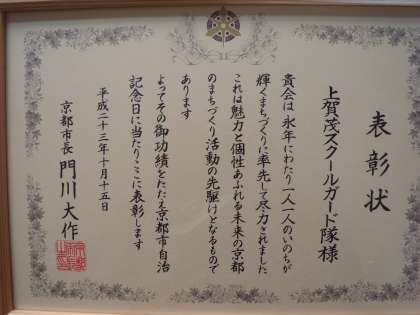 表彰状
上賀茂スクールガード隊様
貴会は永年にわたり一人一人のいのちが
輝くまちづくりに率先して尽力されました
これは魅力と個性あふれる未来の京都
のまちづくり活動の先駆けとなるもので
あります
よってその御功績をたたえ京都市自治
記念日に当たりここに表彰します
平成二十三年十月十五日
京都市長 門川大作